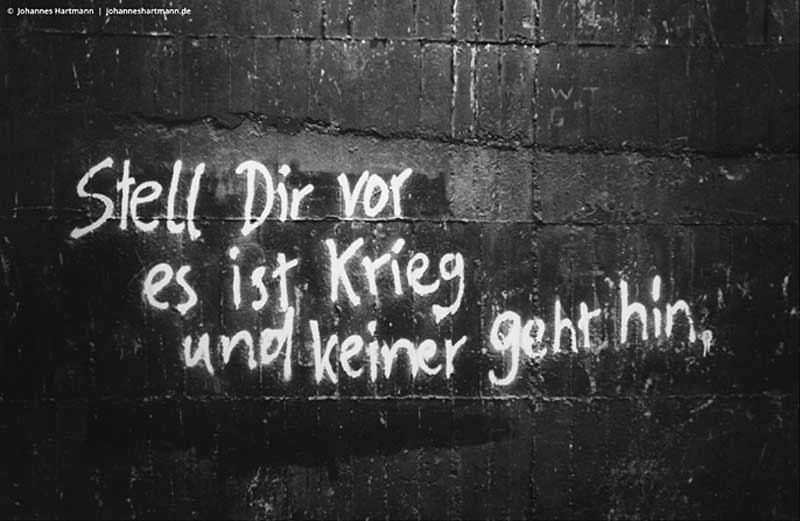 © Johannes Hartmann | johanneshartmann.de
W+T
Stell Dir vor
es ist Krieg
und keiner geht hin.